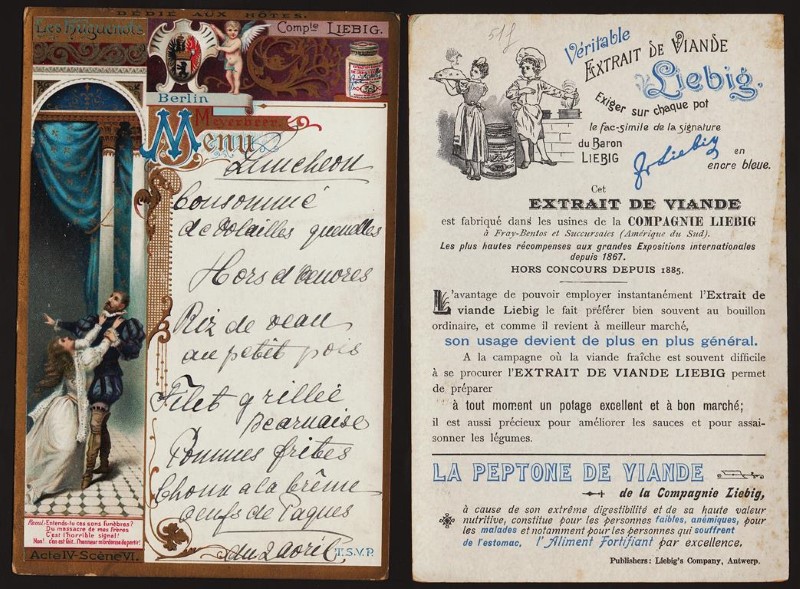 DÉDIÉ AUX HÔTES.
Les Huguenots
Compie LIEBIG.
Berlin
Meyerbeer.
Menu
Luncheon
Consommé
de Volailles quenelles
Hors d'oeuvres
Riz de veau
au petit pois
Filet grillée
Bearnaise
Pommes frites
Choux a la Crême
oeufs de Paques
du 2 avril
T.S.V.P.
Raoul: Entends-tu ces sons funèbres?
Du massacre de mes frères
C'est l'horrible signal!
Acte IV-Scène VI.
517
Véritable
EXTRAIT DE VIANDE
Liebig.
Exiger sur chaque pot
le fac-simile de la signature
du Baron
LIEBIG
JvLiebig
en
encre bleue.
Cet
EXTRAIT DE VIANDE
est fabriqué dans les usines de la COMPAGNIE LIEBIG
à Fray-Bentos et Succursales (Amérique du Sud).
Les plus hautes récompenses aux grandes Expositions internationales
depuis 1867.
HORS CONCOURS DEPUIS 1885.
L'avantage de pouvoir employer instantanément l'Extrait de
viande Liebig le fait préférer bien souvent au bouillon
ordinaire, et comme il revient à meilleur marché,
son usage devient de plus en plus général.
A la campagne où la viande fraîche est souvent difficile
à se procurer l'EXTRAIT DE VIANDE LIEBIG permet
de préparer
à tout moment un potage excellent et à bon marché;
il est aussi précieux pour améliorer les sauces et pour assai-
sonner les légumes.
LA PEPTONE DE VIANDE
de la Compagnie Liebig,
à cause de son extrême digestibilité et de sa haute valeur
nutritive, constitue pour les personnes faibles, anémiques, pour
les malades et notamment pour les personnes qui souffrent
de l'estomac, l'Aliment Fortifiant par excellence.
Publishers: Liebig's Company, Antwerp.